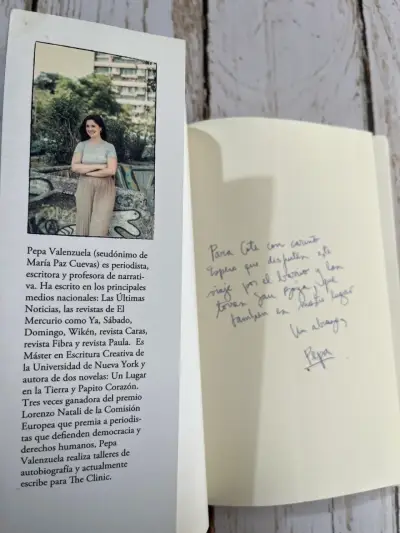 Pepa Valenzuela (seudónimo de
María Paz Cuevas) es periodista,
escritora y profesora de narrati-
va. Ha escrito en los principales
medios nacionales: Las Últimas
Noticias, las revistas de El
Mercurio como Ya, Sábado,
Domingo, Wikén, revista Caras,
revista Fibra y revista Paula. Es
Máster en Escritura Creativa de
la Universidad de Nueva York y
autora de dos novelas: Un Lugar
en la Tierra y Papito Corazón.
Tres veces ganadora del premio
Lorenzo Natali de la Comisión
Europea que premia a periodis-
tas que defienden democracia y
derechos humanos. Pepa
Valenzuela realiza talleres de
autobiografía y actualmente
escribe para The Clinic.
Para Cote con cariño
Espero que disfruten este
viaje por el barrio y
también en lugar
Un abrazo,
Pepa